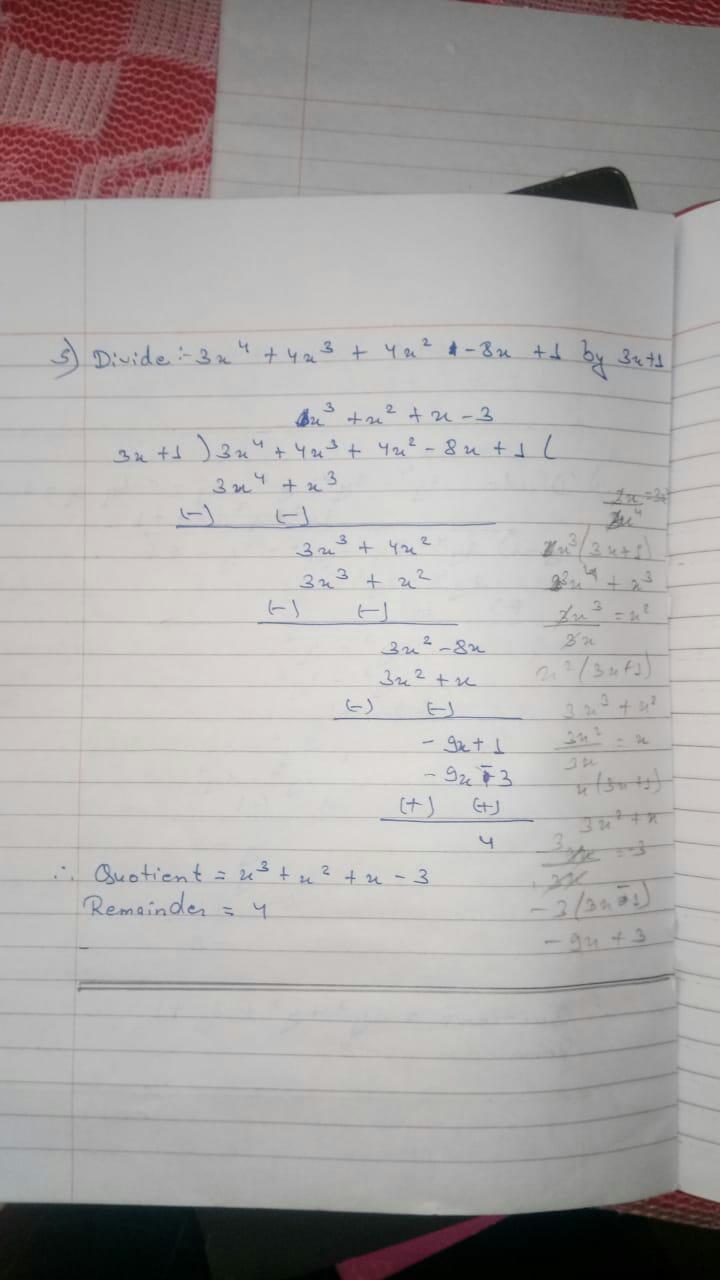 5) Divide :- 3x⁴ + 4x³ + 4x² - 8x + 1 by 3x+1
x³ + x² + x - 3
3x + 1 ) 3x⁴ + 4x³ + 4x² - 8x + 1 (
3x⁴ + x³
(-) (-)
3x³ + 4x²
3x³ + x²
(-) (-)
3x² - 8x
3x² + x
(-) (-)
- 9x + 1
- 9x - 3
(+) (+)
4
∴ Quotient = x³ + x² + x - 3
Remainder = 4
x³(3x+1)
3x⁴ + x³
3x³ = x²
3x
x²(3x+1)
3x³ + x²
3x² = x
3x
x(3x+1)
3x² + x
= -3
- 3(3x 1)
- 9x + 3